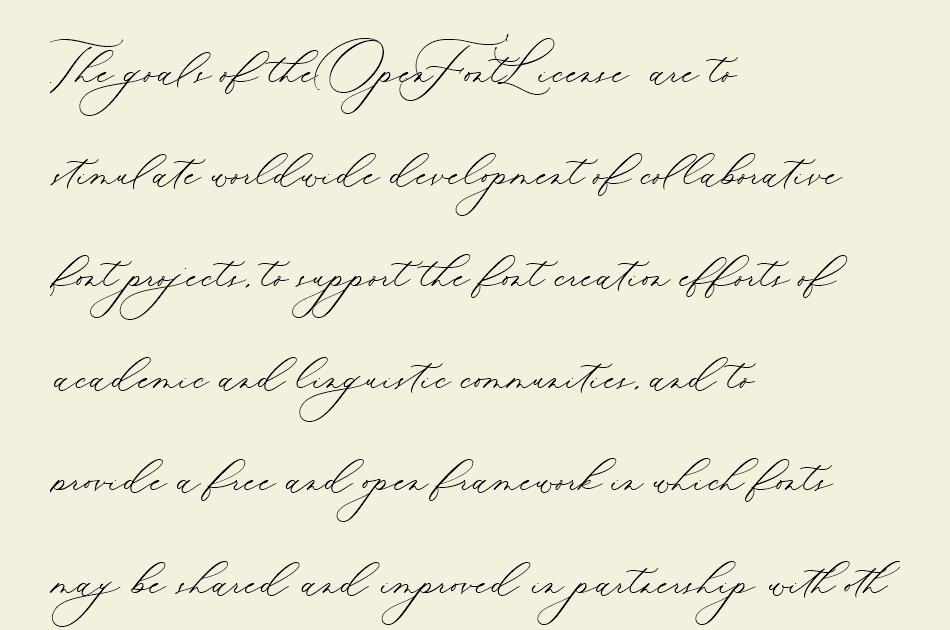 The goals of the Open Font License are to
stimulate worldwide development of collaborative
font projects, to support the font creation efforts of
academic and linguistic communities, and to
provide a free and open framework in which fonts
may be shared and improved in partnership with oth